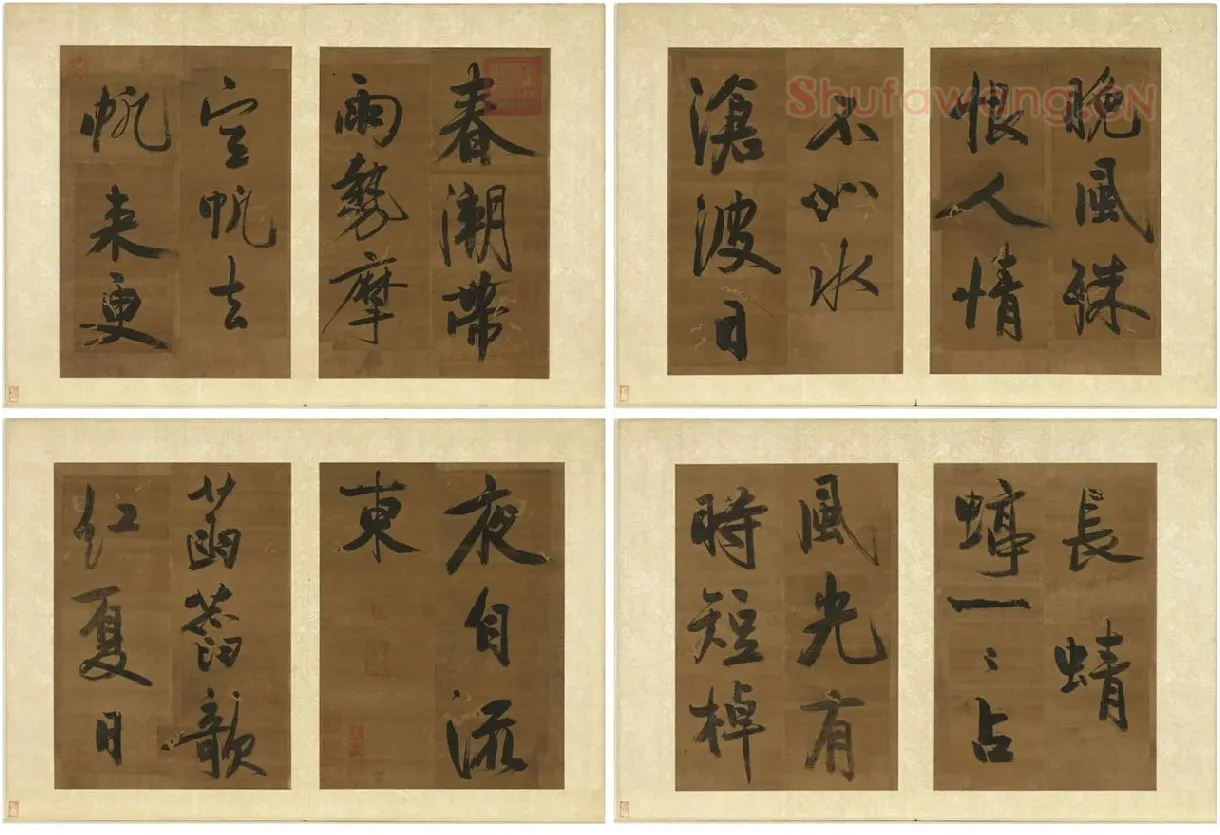 春潮帶
雨勢摩
空帆去
帆来更
晚風殊
恨人情
不如水
滄波日
夜自流
東
菡萏歌
红夏日
長蜻
蜓一〻占
風光有
時短棹
Shufawang.CN